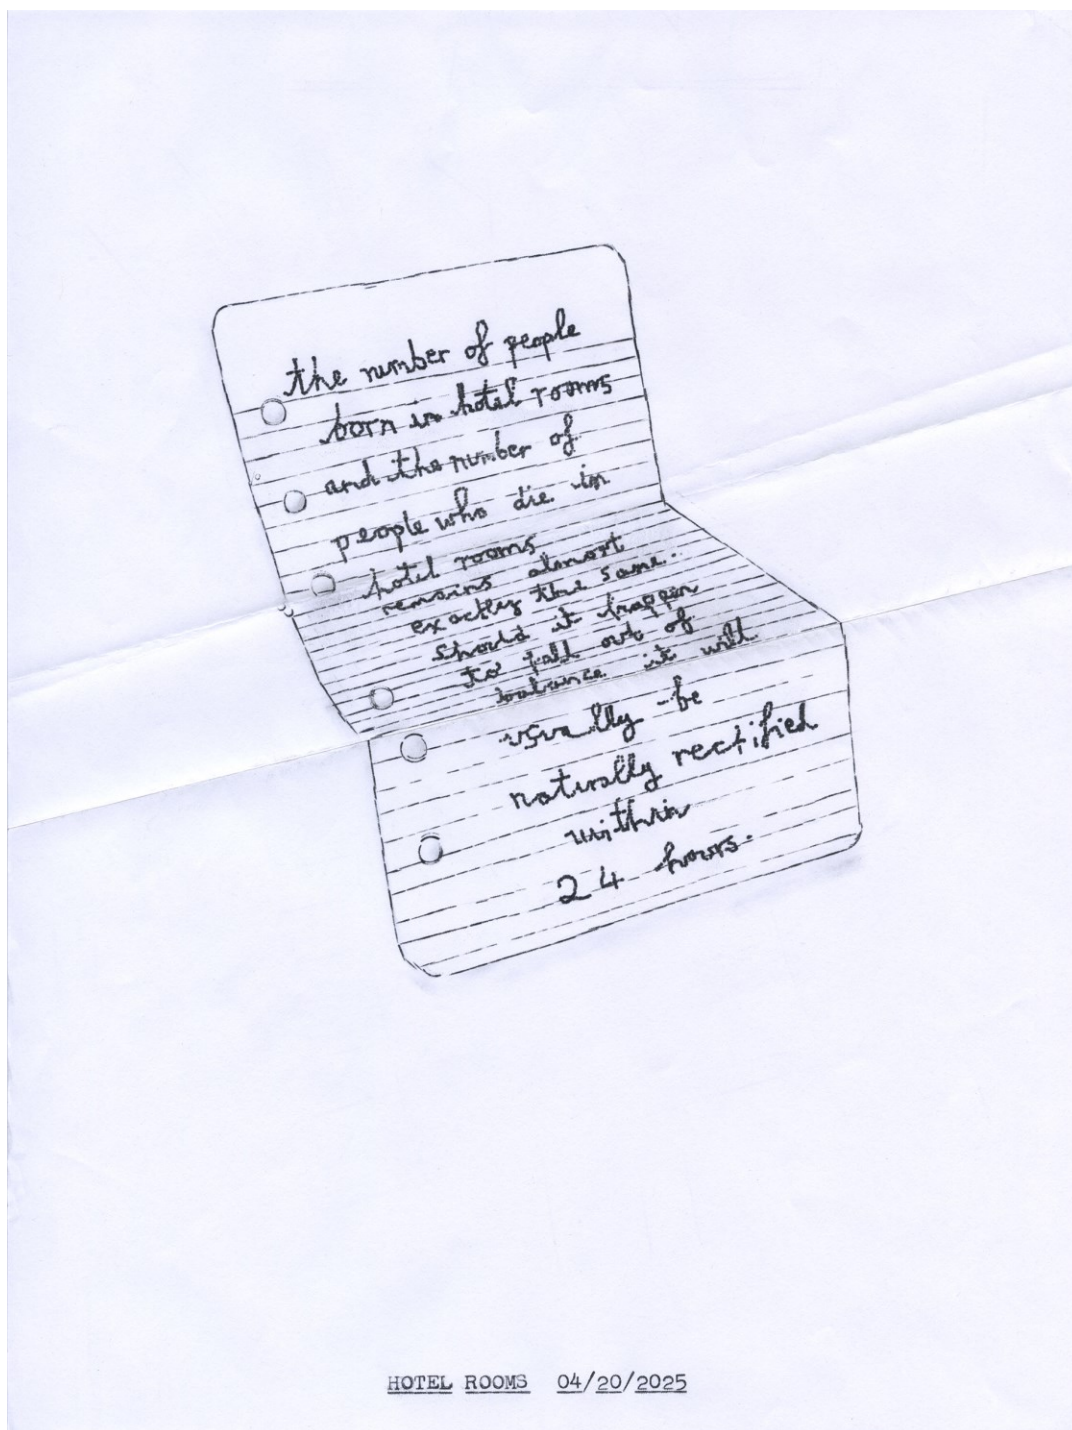 the number of people
born in hotel rooms
and the number of
people who die in
hotel rooms
remains almost
exactly the same.
should it happen
to fall out of
balance it will
usually be
naturally rectified
within
24 hours.
HOTEL ROOMS 04/20/2025